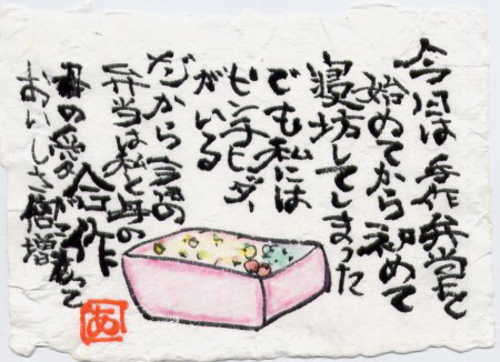 今日は手作弁当を
始めてから初めて
寝坊してしまった
でも私には
ピンチヒッター
がいる
だから今日の
弁当は私と母の
合作
母の愛が
おいしさ倍増
あ